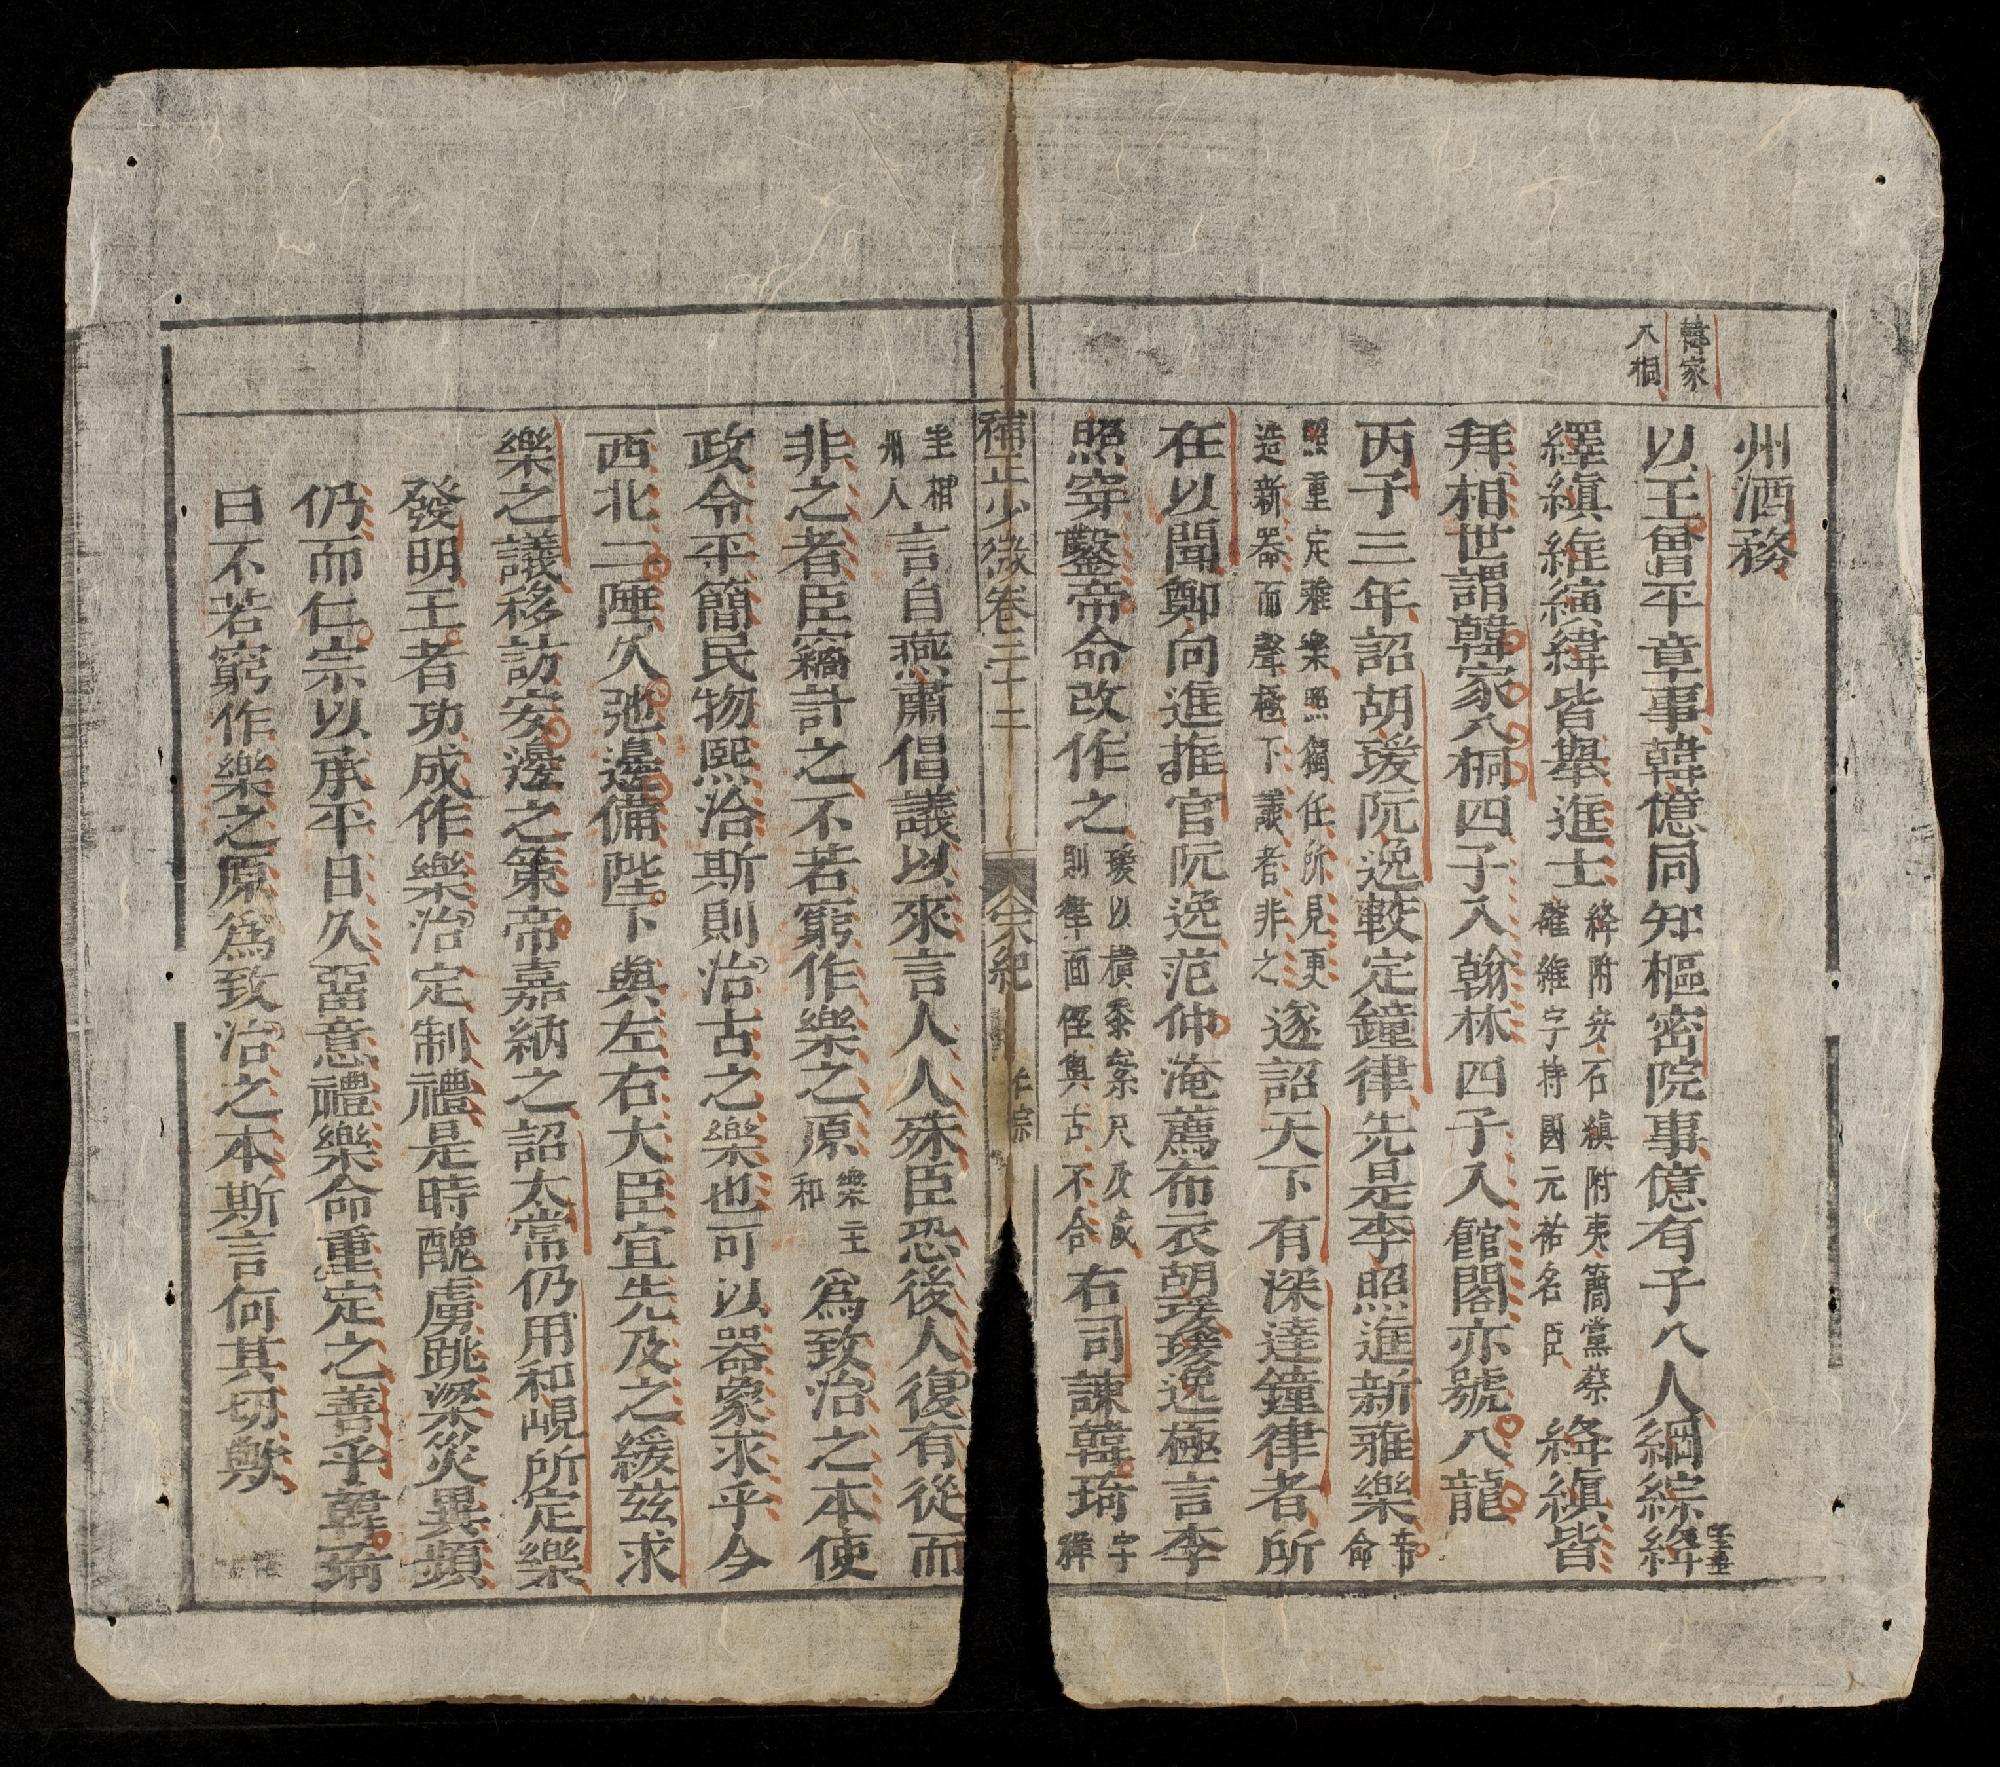 韓家
八桐
州酒務
以王曾平章事韓億同知樞密院事億有子八人綱綜絳
繹縝維縯緯皆舉進士絳附安石縝附夷簡黨蔡確維字持國元祐名臣絳縝皆
拜相世謂韓家八桐四子入翰林四子入館閣亦號八龍
丙子三年詔胡瑗阮逸較定鐘律先是李照進新雅樂帝命
照重定雅樂照獨任所見更造新器而聲極下議者非之遂詔天下有深達鐘律者所
在以聞鄭向進推官阮逸范仲淹薦布衣胡瑗瑗逸極言李
照穿鑿帝命改作之瑗以橫黍案尺及成則律面徑與古不合右司諫韓琦字稺
補正少微卷三十三
宋紀
仁宗
圭相州人言自燕肅倡議以來言人人殊臣恐後人復有從而
非之者臣竊計之不若窮作樂之原樂主和為致治之本使
政令平簡民物熙洽斯則治古之樂也可以器象求乎今
西北二陲久弛邊備陛下與左右大臣宜先及之緩茲求
樂之議移訪安邊之策帝嘉納之詔太常仍用和峴所定樂
發明王者功成作樂治定制禮是時醜虜跳梁災異頻
仍而仁宗以承平日久留意禮樂命重定之善乎韓琦
曰不若窮作樂之原爲致治之本斯言何其切歟